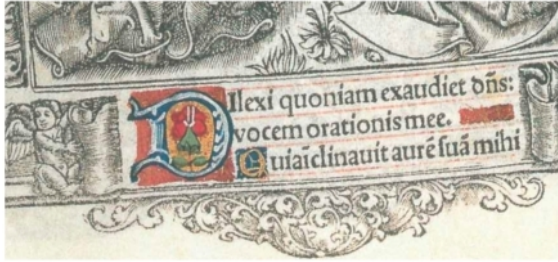 Dilexi quoniam exaudiet dñs:
vocem orationis mee.
Quia īclinauit aurē suā mihi